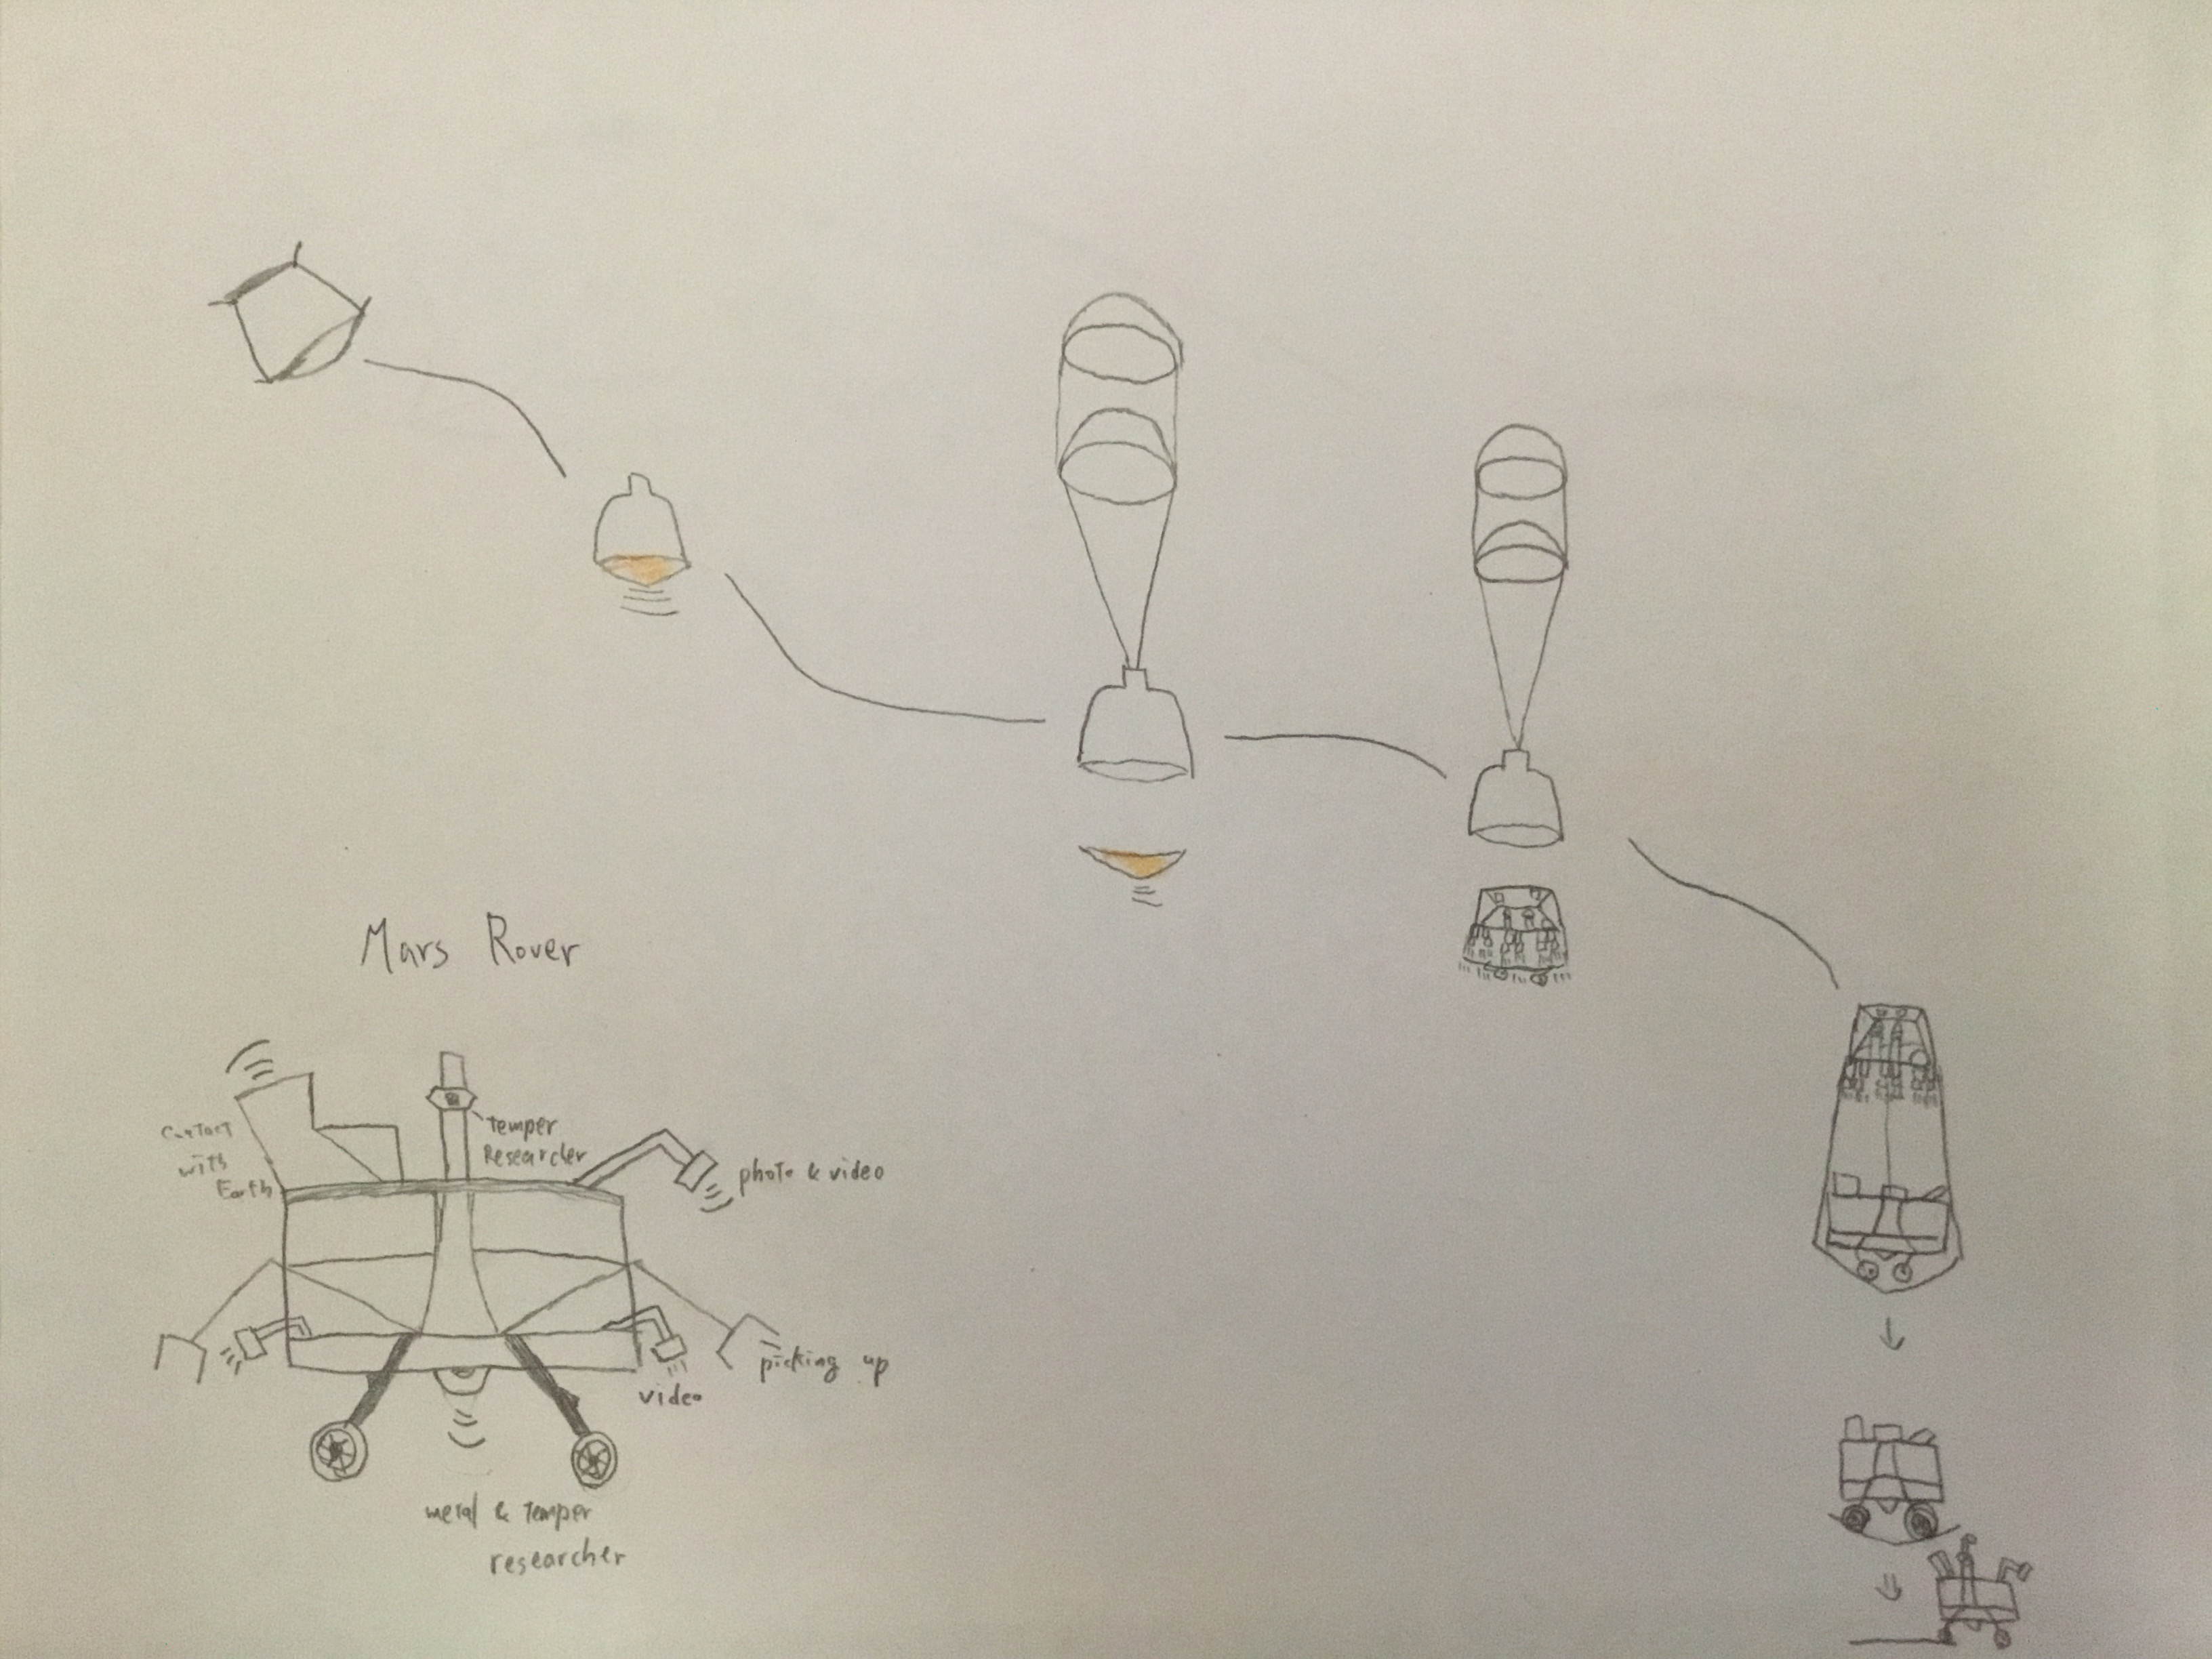 Mars Rover
Contact
with
Earth
temper
Researcher
photo & video
picking up
video
metal & temper
researcher